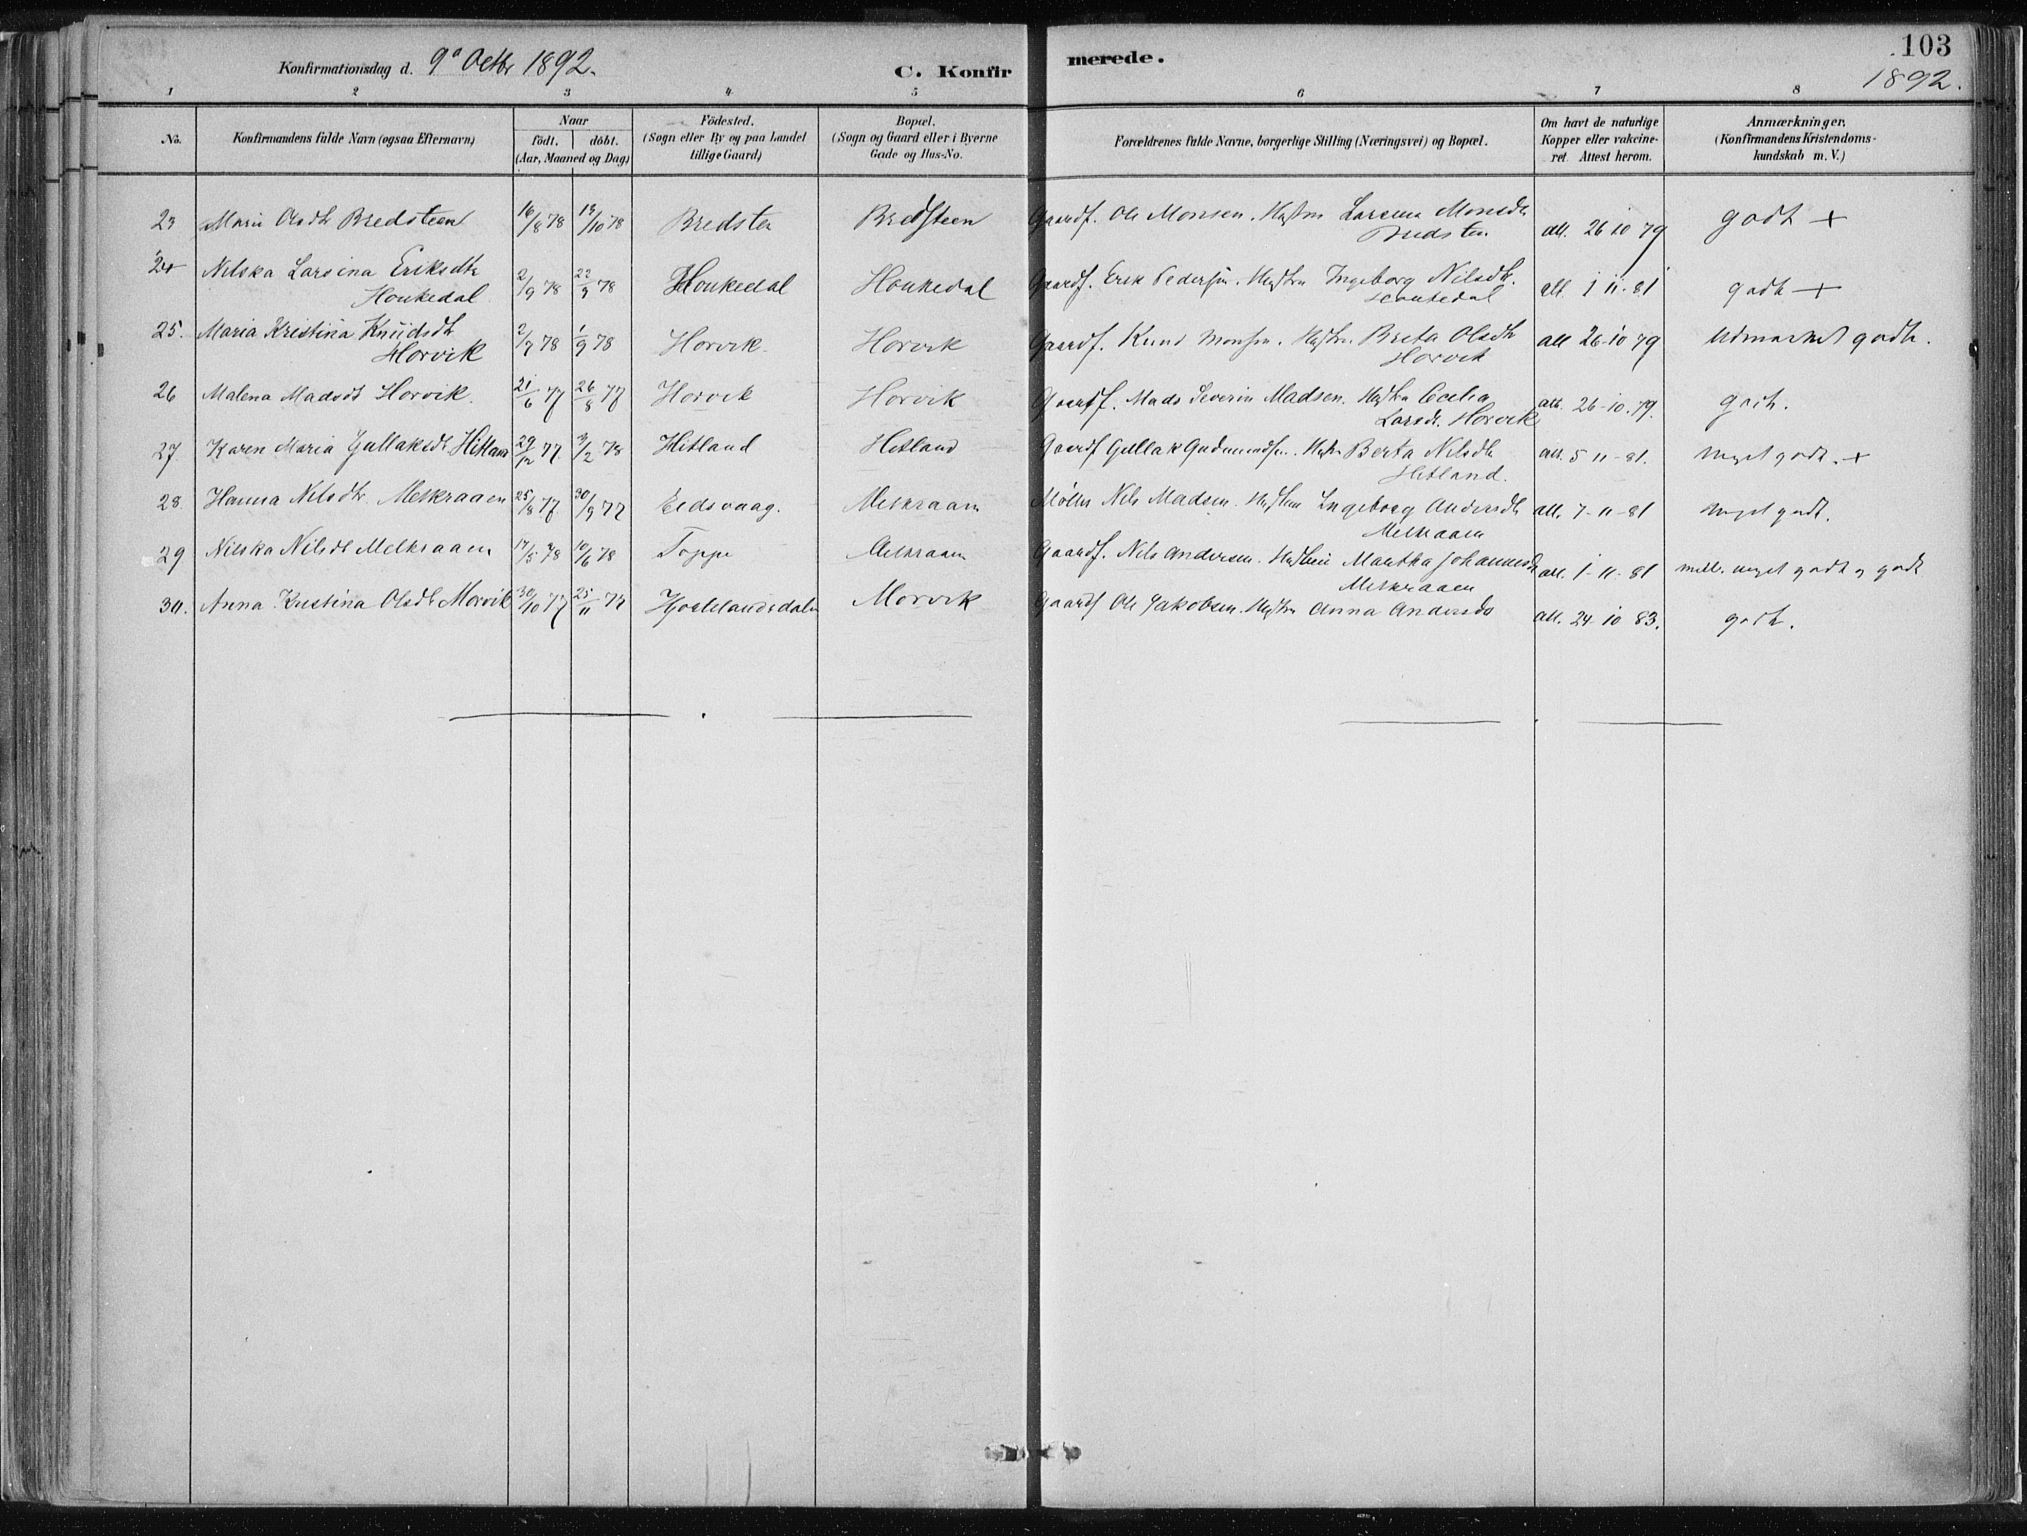 Konfirmationsdag d. 9º Octbr 1892.
C. Konfir
merede.
103
1892.
1 2 3 4 5 6 7 8
No. Konfirmandens fulde Navn (ogsaa Efternavn) Naar födt. döbt. (Aar, Maaned og Dag) Födested. (Sogn eller By og paa Landet tillige Gaard) Bopæl. (Sogn og Gaard eller i Byerne Gade og Hus-No. Forældrenes fulde Navne, borgerlige Stilling (Næringsvei) og Bopæl. Om havt de naturlige Kopper eller vakcineret. Attest herom. Anmærkninger. (Konfirmandens Kristendomskundskab m. V.)
23 Marie Olsdtr Bredsteen 16/8 78 13/10 78 Bredsten Bredsteen Gaardf. Ole Monsen. Hustru Larsina Monsdtr Bredsten att. 26 10 79 godt +
24 Nilska Larsina Eriksdtr Houkedal 2/9 78 22/9 78 Houkedal Houkedal Gaardf. Erik Pedersen. Hustru Ingeborg Nilsdtr. Houkedal att. 1 11-81 godt +
25. Maria Kristina Knudsdtr Horvik 2/7 78 1/9 78 Horvik Horvik Gaardf. Knud Monsen. Hustru Brita Olsdtr Horvik att 26-10 79 Udmærket godt.
26 Malena Madsdt Horvik. 21/6 77 26/8 77 Horvik Horvik Gaardf. Mads Severin Madsen. Hustru Cecilia Larsdt. Horvik att. 26-10.79. godt.
27 Karen Maria Gullaksdt Hitland 29/12 77 3/2 78 Hitland Hitland Gaardf Gullak Gudmundsen. Hustru Berta Nilsdtr Hitland. att. 5 11-81. meget godt. +
28 Hanna Nilsdtr. Melkraaen 25/8 77. 30/9 77 Eidsvaag. Melkraaen Møller Nils Madsen. Hustru Ingeborg Andersdtr Melkraaen att. 7-11-81 meget godt.
29 Nilska Nilsdt Melkraaen 17/5 78 10/6 78 Toppe Melkraaen Gaardf. Nils Andersen. Hustru Martha Johannesdtr Melkraaen att. 1-11-81 mell. meget godt og godt
30. Anna Kristina Olsdtr Morvik 30/10 77 25/11 77 Hjortlandsdalen Morvik Gaardf Ole Jakobsen. Hustru Anna Andersdtr att. 24-10 83. godt.